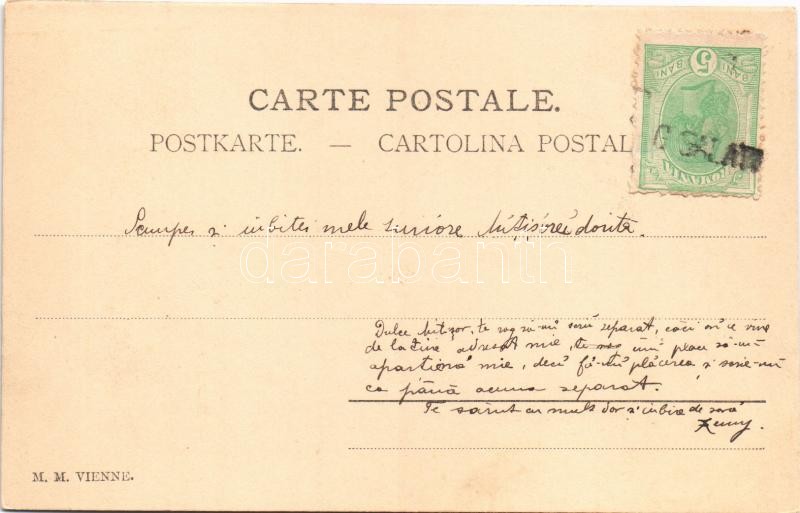 CARTE POSTALE.
POSTKARTE. — CARTOLINA POSTAL
5
BANI BANI
ROMANIA
GALATI
Scumpei și iubitei mele surioare dorita.
darabanth
Dulce Mitzor, te rog să-mi scrii separat, căci ori ce vine
de la tine adresat mie, îmi place să-mi
aparțioră mie, deci fă-mi plăcerea și scrie-mi
ca până acuma separat.
Te sărut cu mult dor și iubire de soră
M. M. VIENNE.